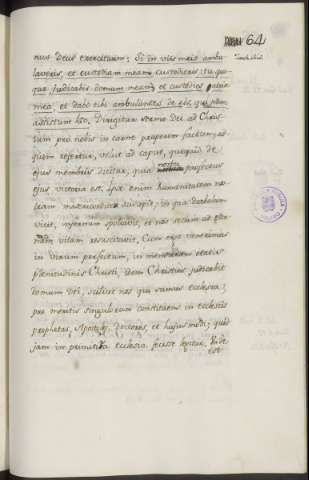 64
nus Deus exercituum; Si in viis meis ambu-
laveris, et custodiam meam custodieris: tu quo-
que judicabis domum meam, et custodies atria
mea, et dabo tibi ambulantes de eis, qui
adsistunt hic, Dirigitur sermo Dei ad Chris-
tum pro nobis in carne properam factum, ad
quem refertur, velut ad caput, quidquid de
ejus membris dicitur, quia noster profectus
ejus victoria est. Ipse enim humanitatem nos-
tram
vicit, mortuum spoliavit, et nos secum ad æter-
nam vitam resuscitavit, Cum ergo venerimus
in virum perfectum, in mensuram ætatis
plenitudinis Christi, dum Christus judicabit
domum Dei, scilicet nos qui sumus ecclesia;
pro meritis singulorum constituens in ecclesia
prophetas, Apostolos, Doctores, et hujus modi; quod
jam in primitiva ecclesia fecisse Unde
est